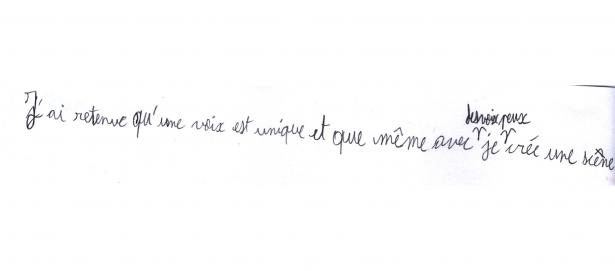 J'ai retenue qu'une voix est unique et que même avec des voix je peux crée une scène